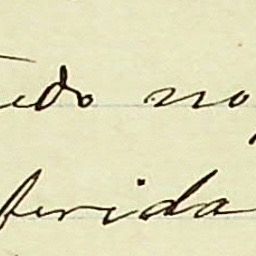 tudo no
ferida